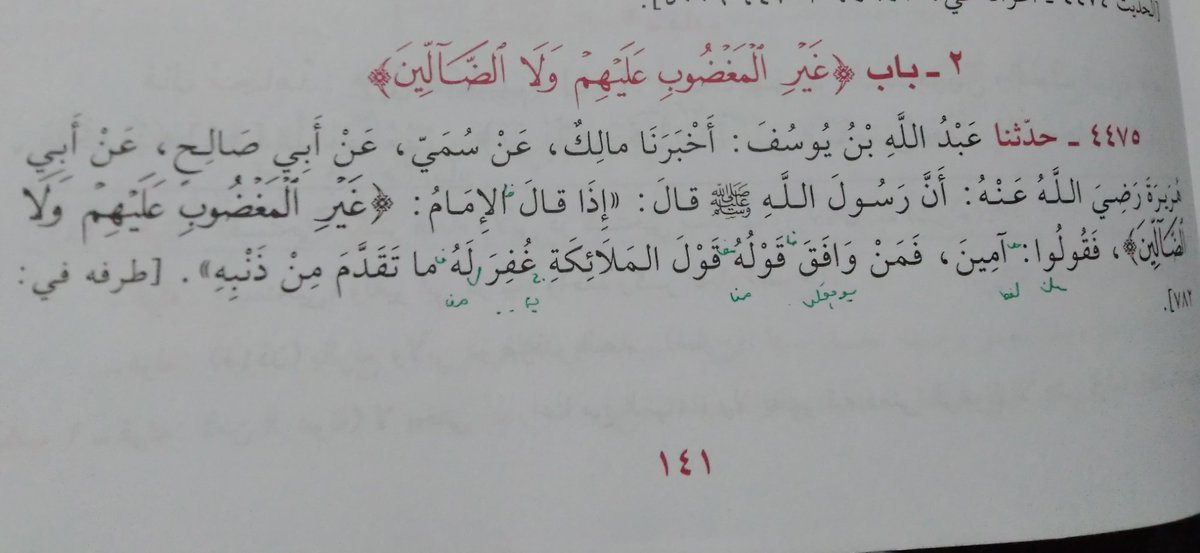 [الحديث ٤٤٧٤
٢ ـ باب ﴿غَيْرِ الْمَغْضُوبِ عَلَيْهِمْ وَلَا الضَّآلِّينَ﴾
٤٤٧٥ ـ حدّثنا عَبْدُ اللَّهِ بْنُ يُوسُفَ: أَخْبَرَنَا مالِكٌ، عَنْ سُمَيّ، عَنْ أَبِي صَالِحٍ، عَنْ أَبِي
هُرَيْرَةَ رَضِيَ اللَّهُ عَنْهُ: أَنَّ رَسُولَ اللَّهِ ﷺ قالَ: «إِذَا قالَ الإِمَامُ: ﴿غَيْرِ الْمَغْضُوبِ عَلَيْهِمْ وَلَا
الضَّآلِّينَ﴾، فَقُولُوا: آمِينَ، فَمَنْ وَافَقَ قَوْلُهُ قَوْلَ المَلَائِكَةِ غُفِرَ لَهُ ما تَقَدَّمَ مِنْ ذَنْبِهِ». [طرفه في:
٧٨٢].
١٤١